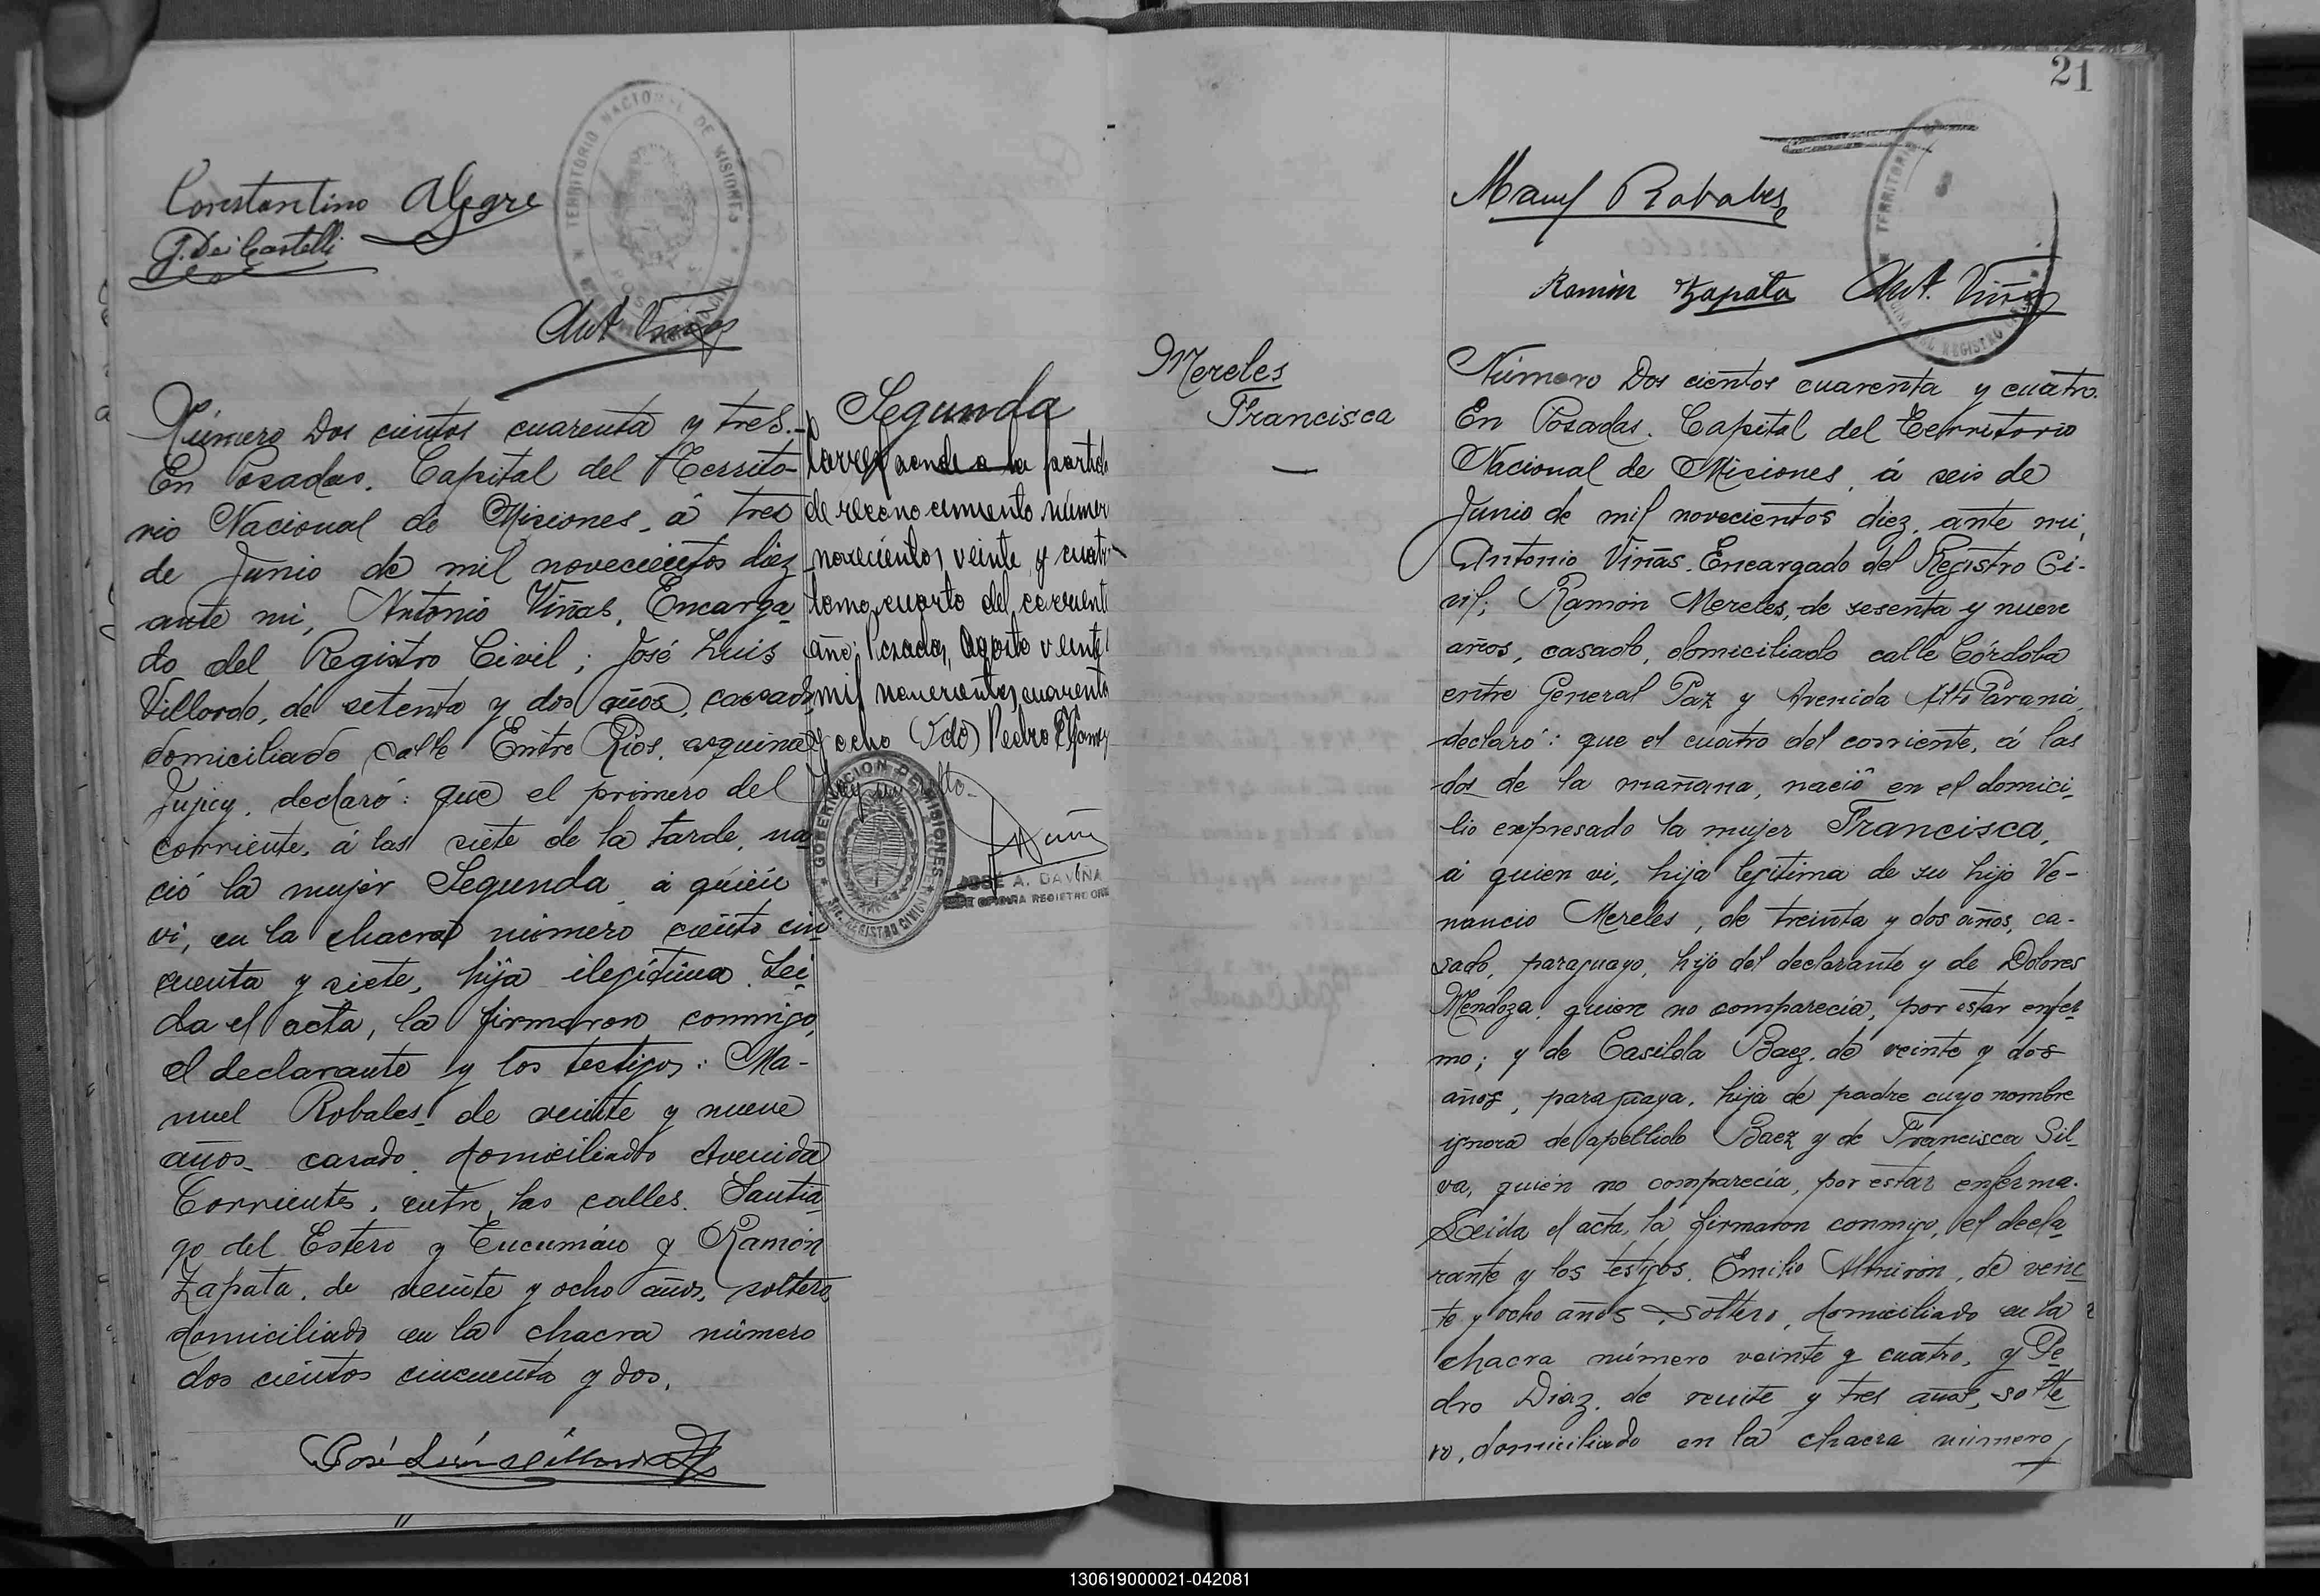 Constantino Alegre
G. Dei Castelli
TERRITORIO NACIONAL DE MISIONES
Ant Viñas
Número Dos cientos cuarenta y tres.-
En Posadas. Capital del Territo-
rio Nacional de Misiones, á tres
de Junio de mil novecientos diez
ante mi, Antonio Viñas, Encarga-
do del Registro Civil; José Luis
Villordo, de setenta y dos años, casado,
domiciliado calle Entre Rios, esquina
Jujuy, declaró: que el primero del
corriente, á las siete de la tarde, na-
ció la mujer Segunda, á quien
vi, en la chacra número ciento cin
cuenta y siete, hija ilegítima. Lei-
da el acta, la firmaron conmigo,
el declarante y los testigos: Ma-
nuel Robales, de veinte y nueve
años, casado, domiciliado Avenida
Corrientes, entre las calles Santia-
go del Estero y Tucumán y Ramón
Zapata, de veinte y ocho años, soltero,
domiciliado en la chacra número
dos cientos cincuenta y dos.
José Luis Villordo
Segunda
Corresponde a la partida
de reconocimiento númer
novecientos veinte y cuatr
tomo cuarto del corrient
año: Posadas, Agosto veinte
mil novecientos cuarenta
y ocho (Vdo) Pedro
GOBERNACION DE MISIONES
REGISTRO CIVIL
JOSE A. DAVIÑA
JEFE OFICINA REGISTRO CIVIL
21
Manl Robales
Ramón Zapata Ant. Viñas
TERRITORIO
DEL REGISTRO CIVIL
Mereles
Francisca
Número Dos cientos cuarenta y cuatro.
En Posadas. Capital del Territorio
Nacional de Misiones, á seis de
Junio de mil novecientos diez, ante mi,
Antonio Viñas. Encargado del Registro Ci-
vil; Ramón Mereles, de sesenta y nueve
años, casado, domiciliado calle Córdoba
entre General Paz y Avenida Alto Paraná,
declaró: que el cuatro del corriente, á las
dos de la mañana, nació en el domici-
lio expresado la mujer Francisca,
á quien vi, hija legítima de su hijo Ve-
nancio Mereles, de treinta y dos años, ca-
sado, paraguayo, hijo del declarante y de Dolores
Mendoza, quien no comparecía, por estar enfer-
mo; y de Casilda Baez, de veinte y dos
años, paraguaya, hija de padre cuyo nombre
ignora de apellido Baez y de Francisca Sil-
va, quien no comparecía, por estar enferma.
Leida el acta, la firmaron conmigo, el decla-
rante y los testigos, Emilio Almirón, de vein-
te y ocho años, soltero, domiciliado en la
chacra número veinte y cuatro, y Pe-
dro Diaz, de veinte y tres años, solte-
ro, domiciliado en la chacra número
130619000021-042081